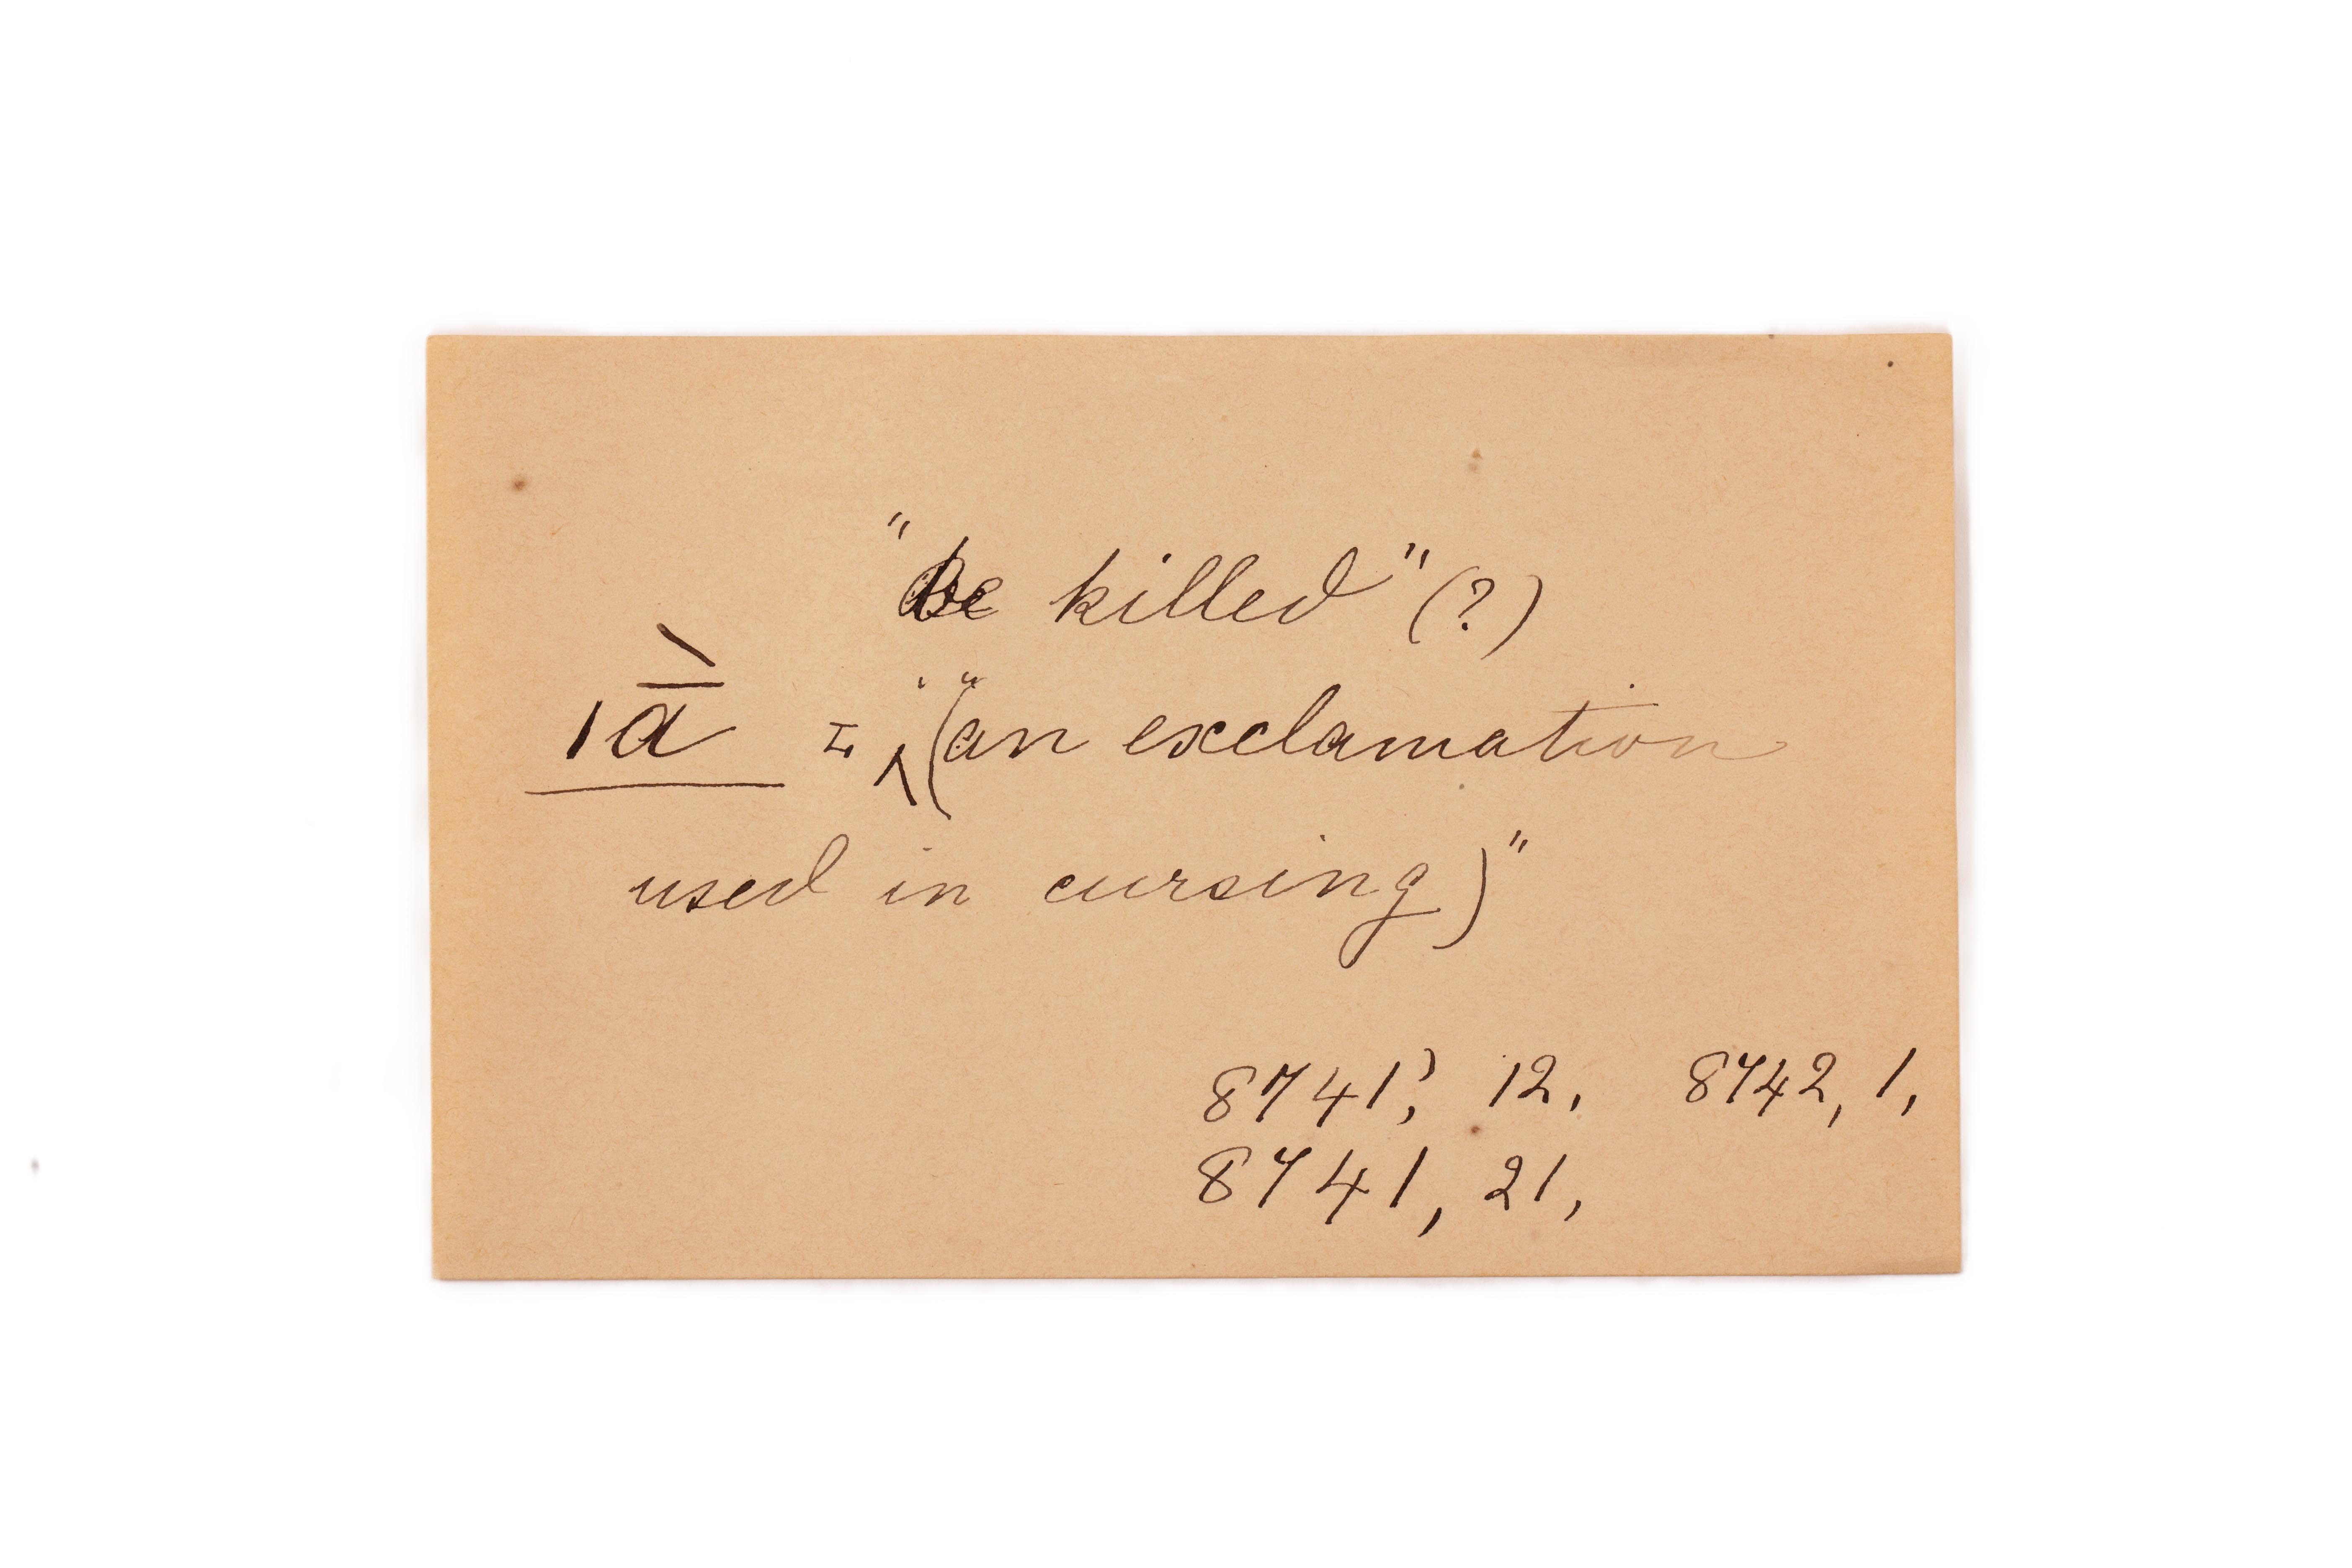 "Be killed" (?)
ıā̀ = ‸ "(an exclamation
used in cursing)"
8741, 12, 8742, 1,
8741, 21,